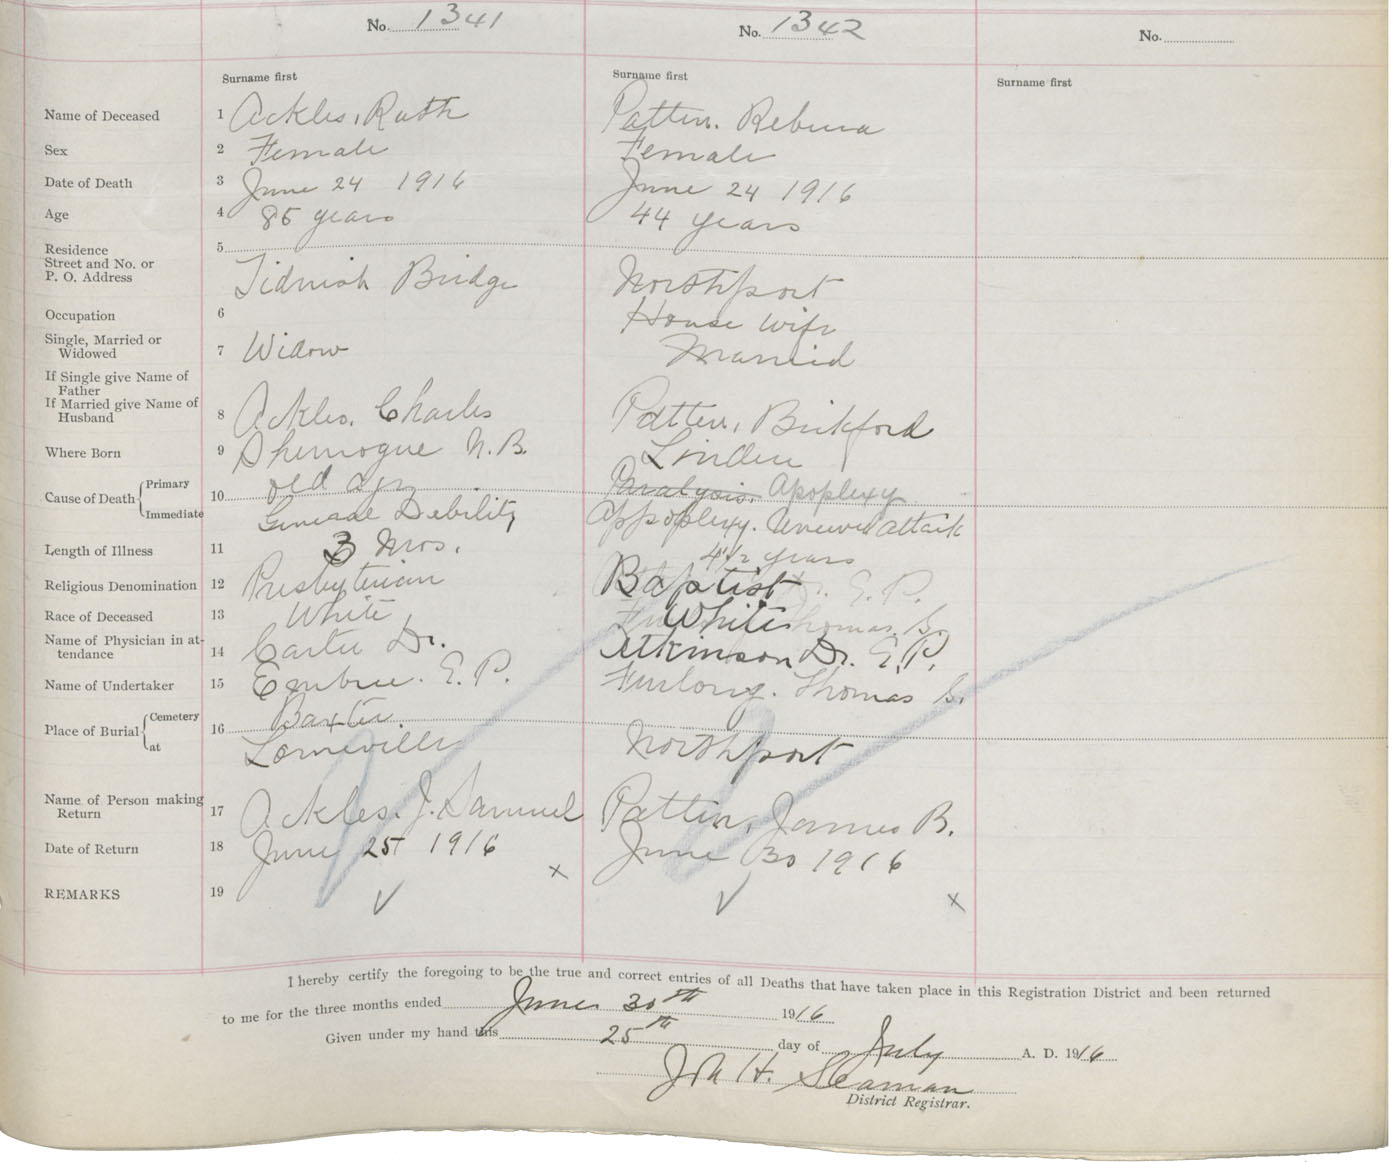 No. 1341 No. 1342 No.
Surname first Surname first Surname first
Name of Deceased 1 Ackles, Ruth Patten, Rebecca
Sex 2 Female Female
Date of Death 3 June 24 1916 June 24 1916
Age 4 85 years 44 years
Residence 5
Street and No. or
P. O. Address Tidnish Bridge Northport
Occupation 6 House Wife
Single, Married or
Widowed 7 Widow Married
If Single give Name of
Father
If Married give Name of
Husband 8 Ackles, Charles Patten, Bickford
Where Born 9 Shemogue N.B. Linden
Cause of Death Primary 10 old age Paralysis. Apoplexy
Immediate General Debility Appoplexy. attack
Length of Illness 11 3 Mos. 4 1/2 years
Religious Denomination 12 Presbyterian Baptist
Race of Deceased 13 White White
Name of Physician in at-
tendance 14 Carter Dr. Atkinson Dr. E.P.
Name of Undertaker 15 Embree. E. P. Furlong. Thomas S.
Place of Burial Cemetery 16 Baxter
at Lorneville Northport
Name of Person making
Return 17 Ackles. J. Samuel Patten, James B.
Date of Return 18 June 25 1916 June 30 1916
REMARKS 19
I hereby certify the foregoing to be the true and correct entries of all Deaths that have taken place in this Registration District and been returned
to me for the three months ended June 30th 1916
Given under my hand this 25th day of July A. D. 1916
Jon H. Seaman
District Registrar.